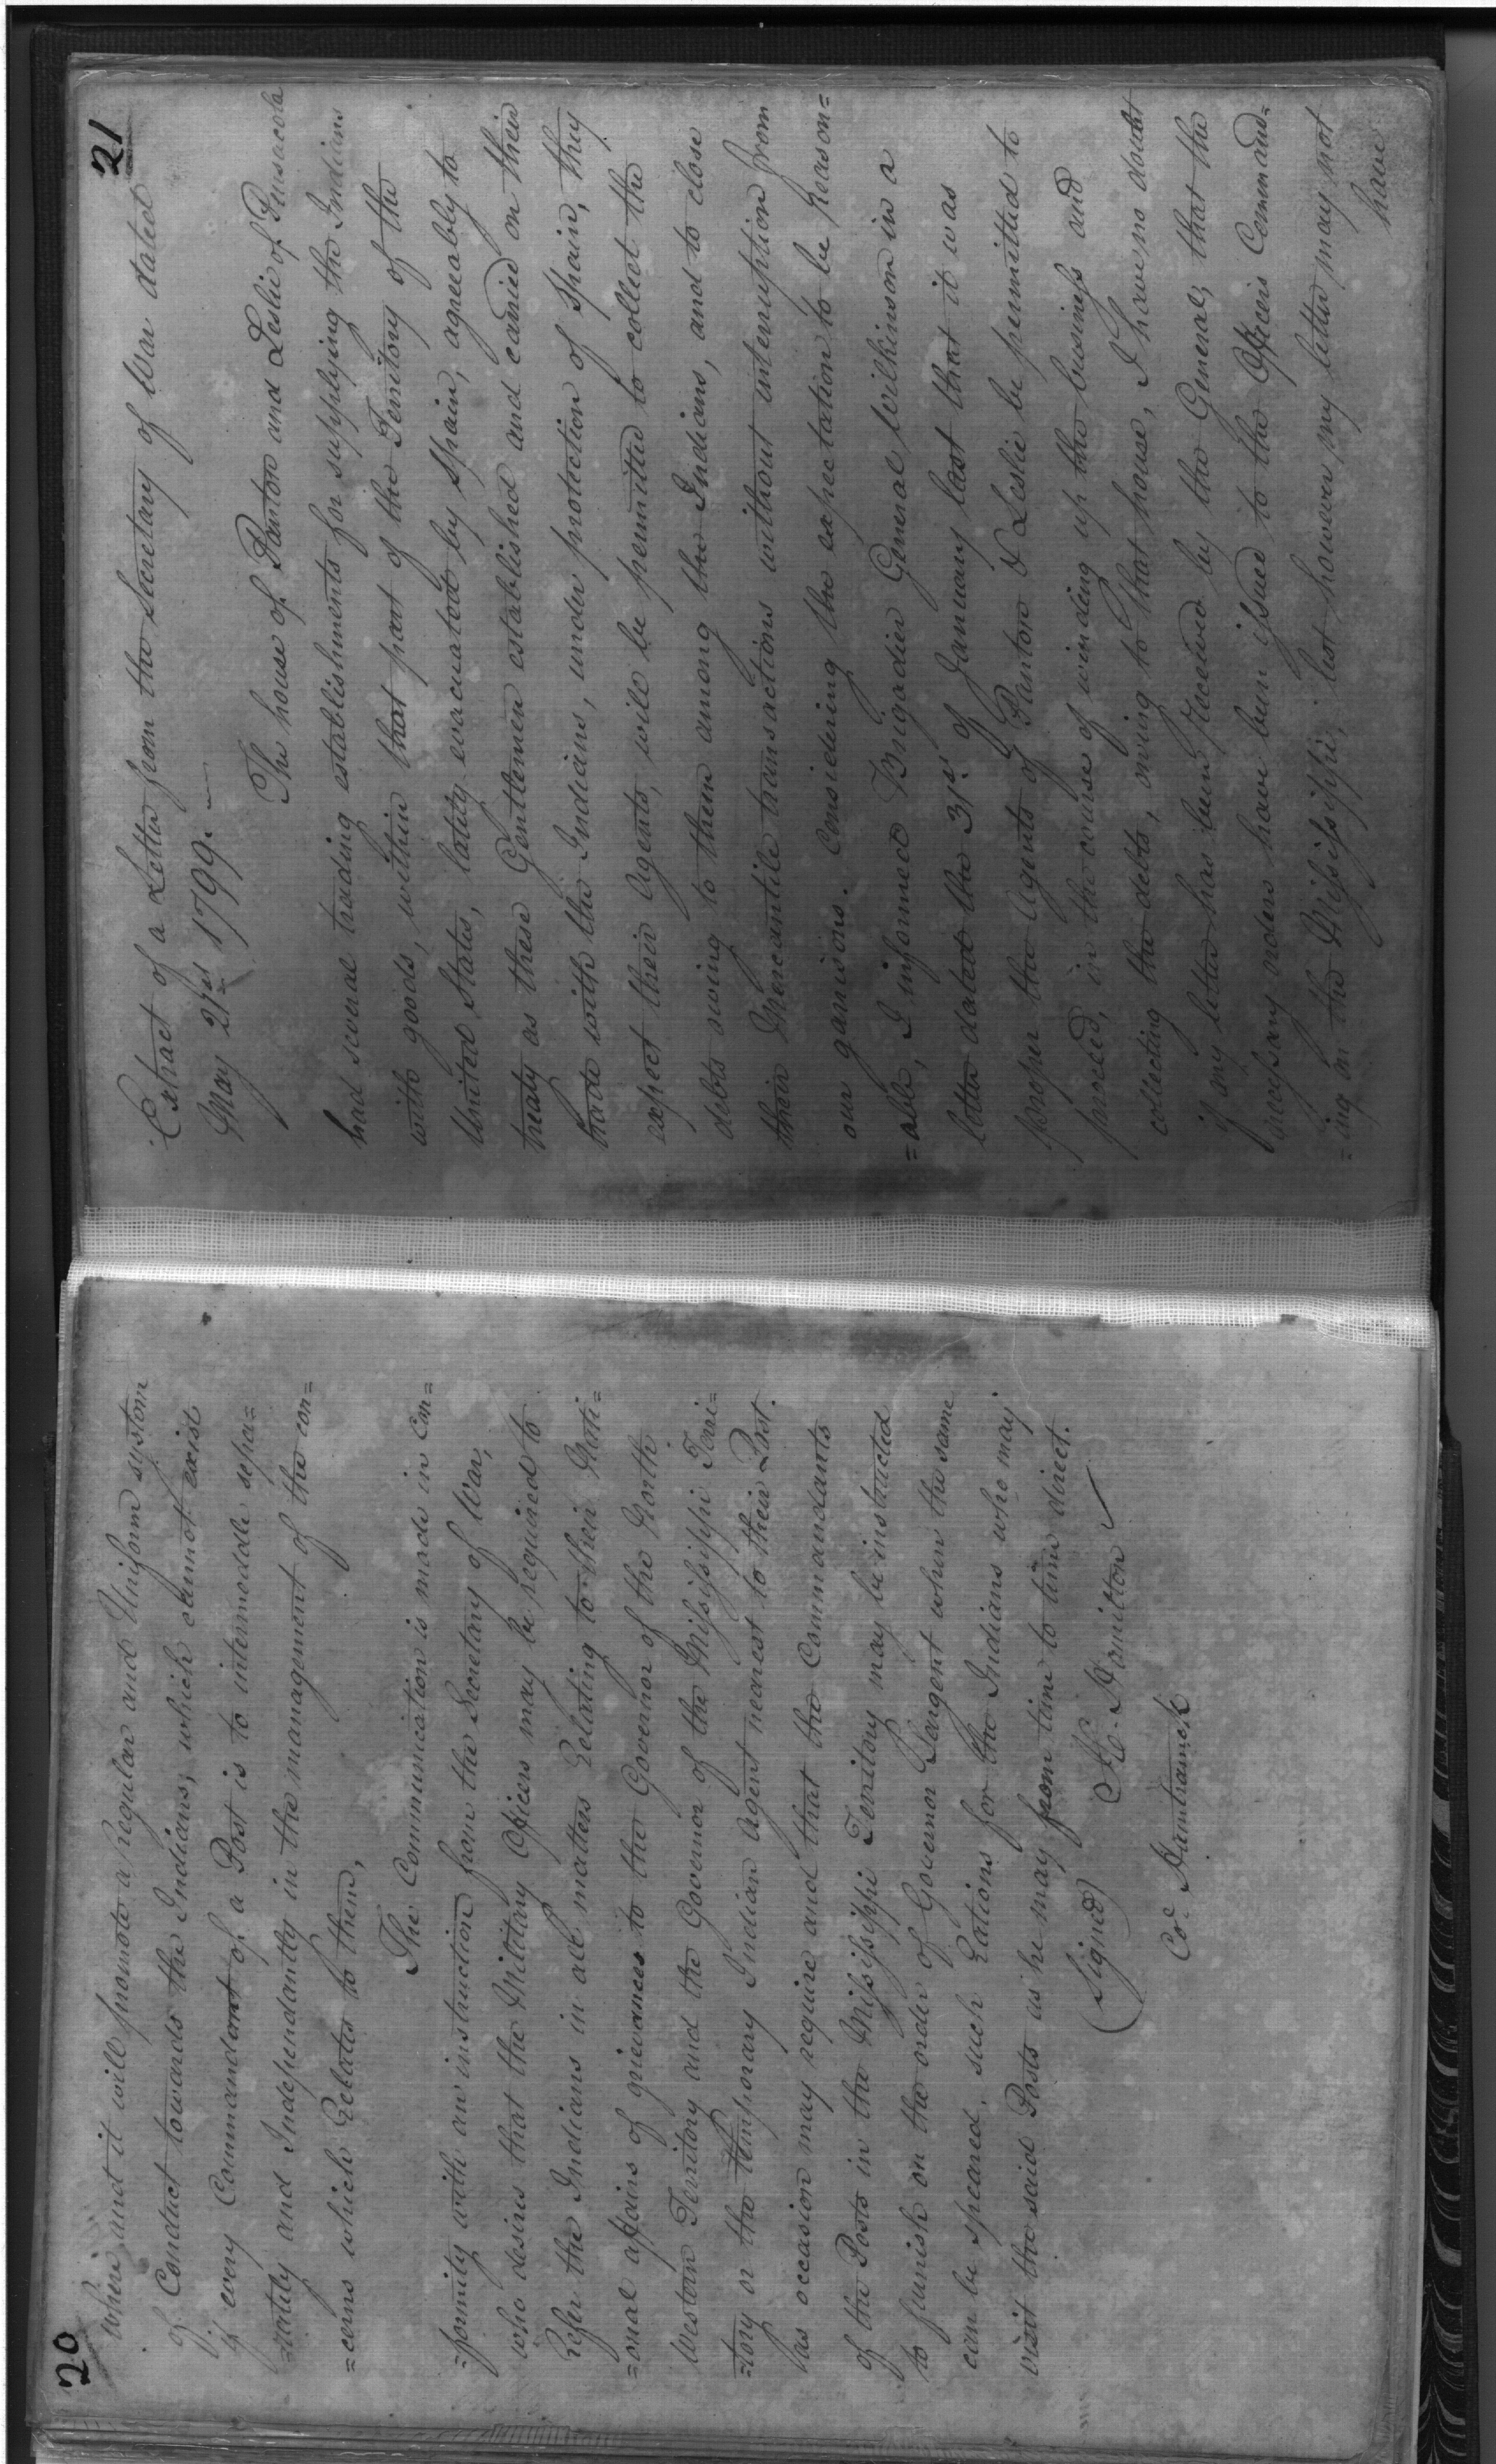 20
where and it will promote a regular and Uniform system
of Conduct towards the Indians, which cannot exist
if every Commandant of a Post is to intermeddle sepa=
=rately and Independantly in the management of the con=
=cerns which Relates to them,
The Communication is made in Con=
=formity with an instruction from the Secretary of War,
who desires that the Military Officers may be required to
Refer the Indians in all matters Relating to their Nati=
=onal affairs of grievances to the Governor of the North
Western Territory and the Governor of the Mississippi Terri=
=tory or the temporary Indian Agent nearest to their Post.
has occasion may require and that the Commandants
of the Posts in the Mississippi Territory may be instructed
to furnish on the order of Governor Sargent when the same
can be speared, such Rations for the Indians who may
visit the said Posts as he may from time to time direct.
(Signed) A. Hamilton
Col. Hamtramck
21
Extract of a Letter from the Secretary of War dated
May 21st 1799. —
The house of Panton and Leslie of Pensacola
had several trading establishments for supplying the Indians
with goods, within that part of the Territory of the
United States, lately evacuated by Spain, agreeably to
treaty as these Gentlemen established and carried on their
trade with the Indians, under protection of Spain, they
expect their Agents, will be permitted to collect the
debts owing to them among the Indians, and to close
their Mercantile transactions without interruption from
our garrisons. Considering the expectation to be Reason=
=able, I informed Brigadier General Wilkinson in a
letter dated the 31st of January last that it was
proper the Agents of Panton & Leslie be permitted to
proceed, in the course of winding up the business and
collecting the debts, owing to that house, I have no doubt
if my letter has been Received by the General, that the
necessary orders have been issued to the Officers Command=
=ing on the Mississippi, lest however my letter may not
have